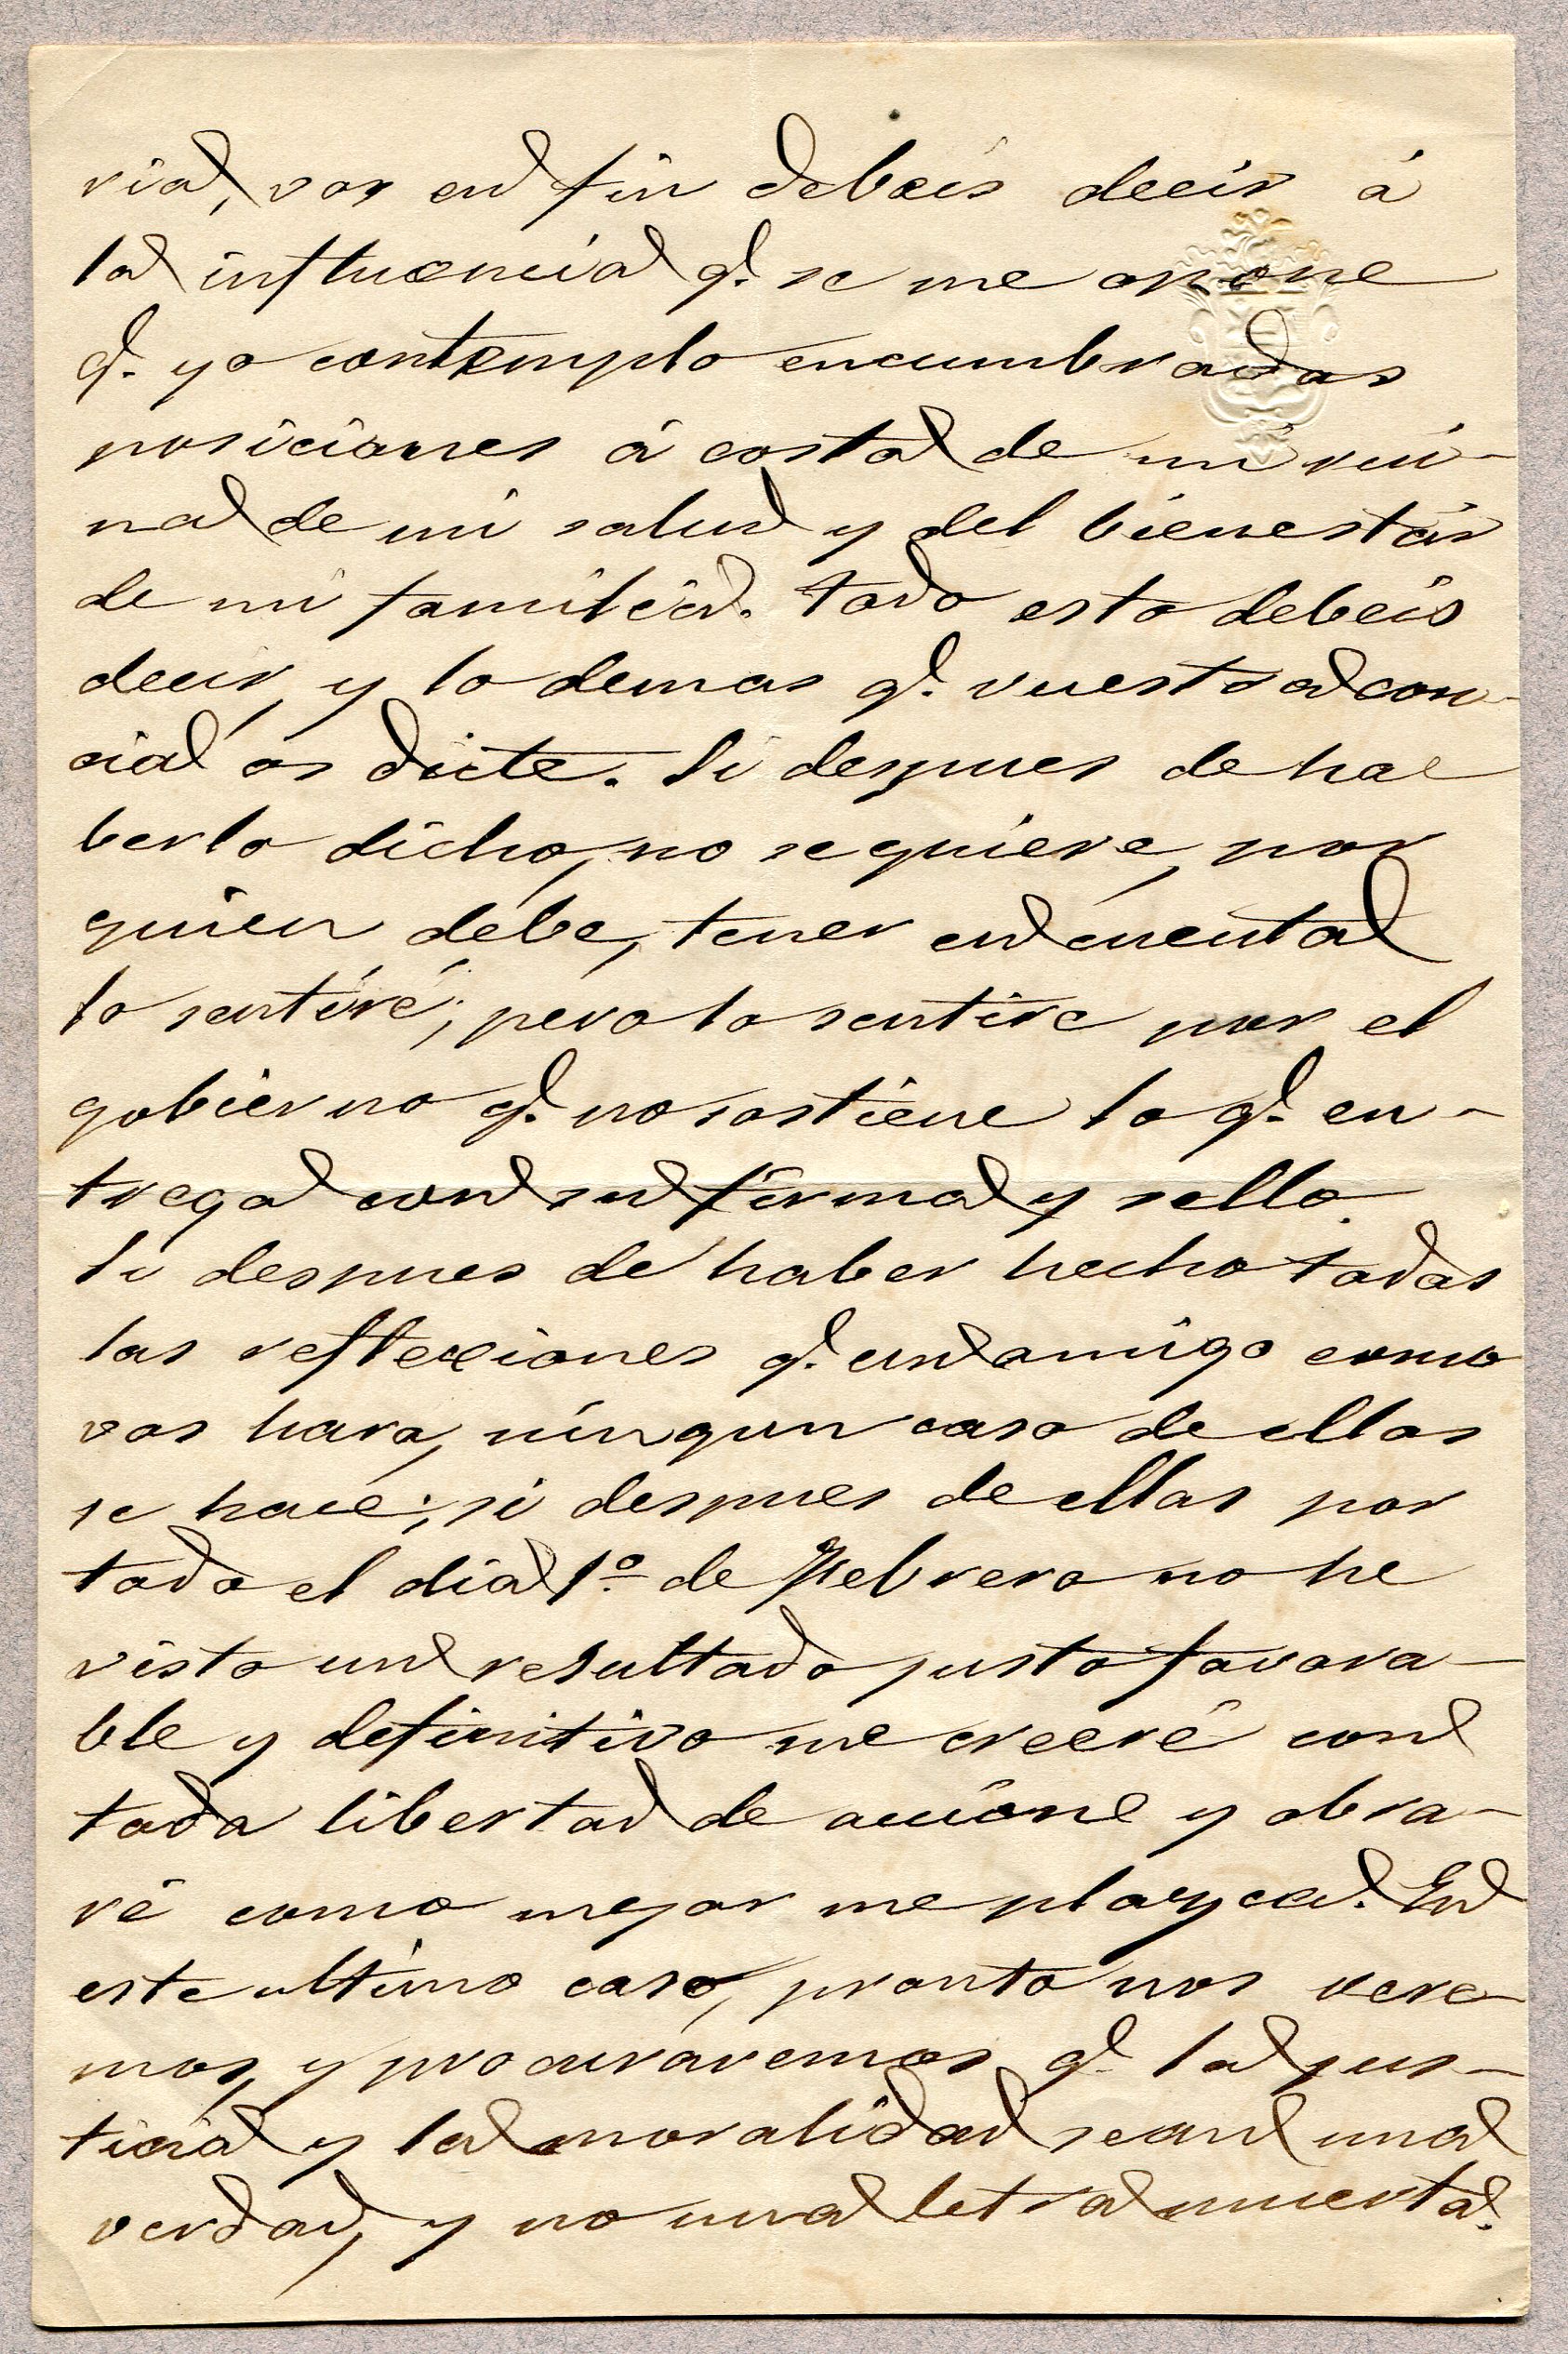 ria, vos en fin debeis decir á
la influencia q.e se me opone
q.e yo contemplo encumbradas
posiciones á costa de mi rui-
na de mi salud y del bienestár
de mi familia. Todo esto debeis
decir, y lo demas q.e vuestra con-
cia os dicte. Si despues de ha-
berlo dicho, no se quiere, por
quien debe, tener en cuenta
lo sentiré; pero lo sentire por el
gobierno q.e no sostiene lo q.e en-
trega con su firma y sello.
Si despues de haber hecho todas
las reflexiones q.e un amigo como
vos hara, ningun caso de ellas
se hace; si despues de ellas por
todo el dia 1º de Febrero no he
visto un resultado justo favora-
ble y definitivo me creeré con
toda libertad de accione y obra-
ré como mejor me playcea. En
este ultimo caso, pronto nos vere-
mos, y procuráremos q.e la jus-
ticia y la moralidad sean una
verdad, y no una letra muerta.